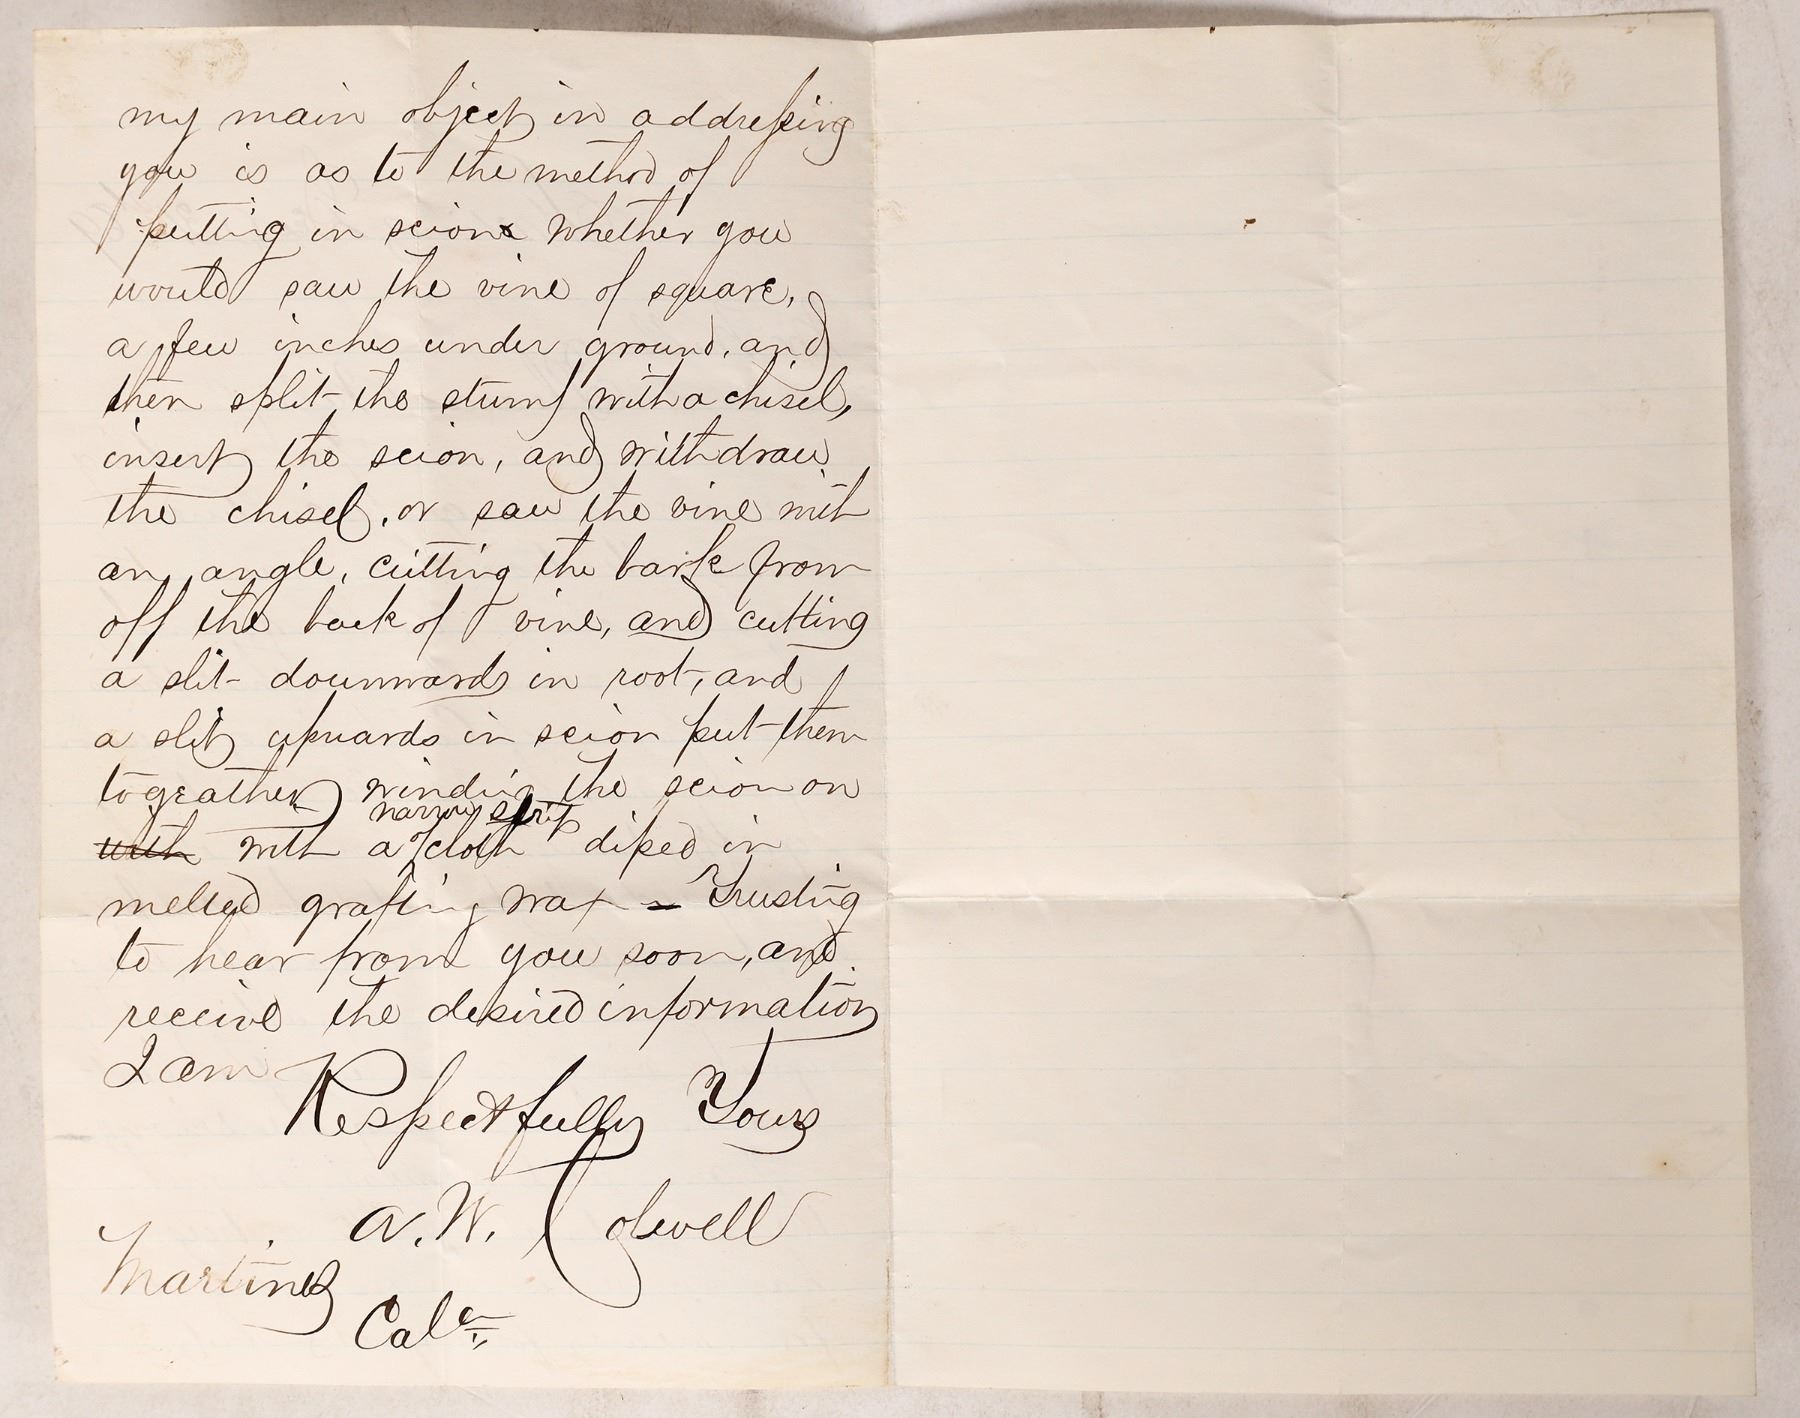 my main object in addressing
you is as to the method of
putting in scions whether you
would saw the vine of square,
a few inches under ground, and
then split the stump with a chisel,
insert the scion, and withdraw
the chisel, or saw the vine with
an angle, cutting the bark from
off the back of vine, and cutting
a slit downwards in root, and
a slit upwards in scion put them
togeather winding the scion on
narrow strip
with with a cloth diped in
melted grafting wax = Trusting
to hear from you soon, and
receive the desired information
I am
Respectfully Yours
A. W. Colwell
Martinez
Cala